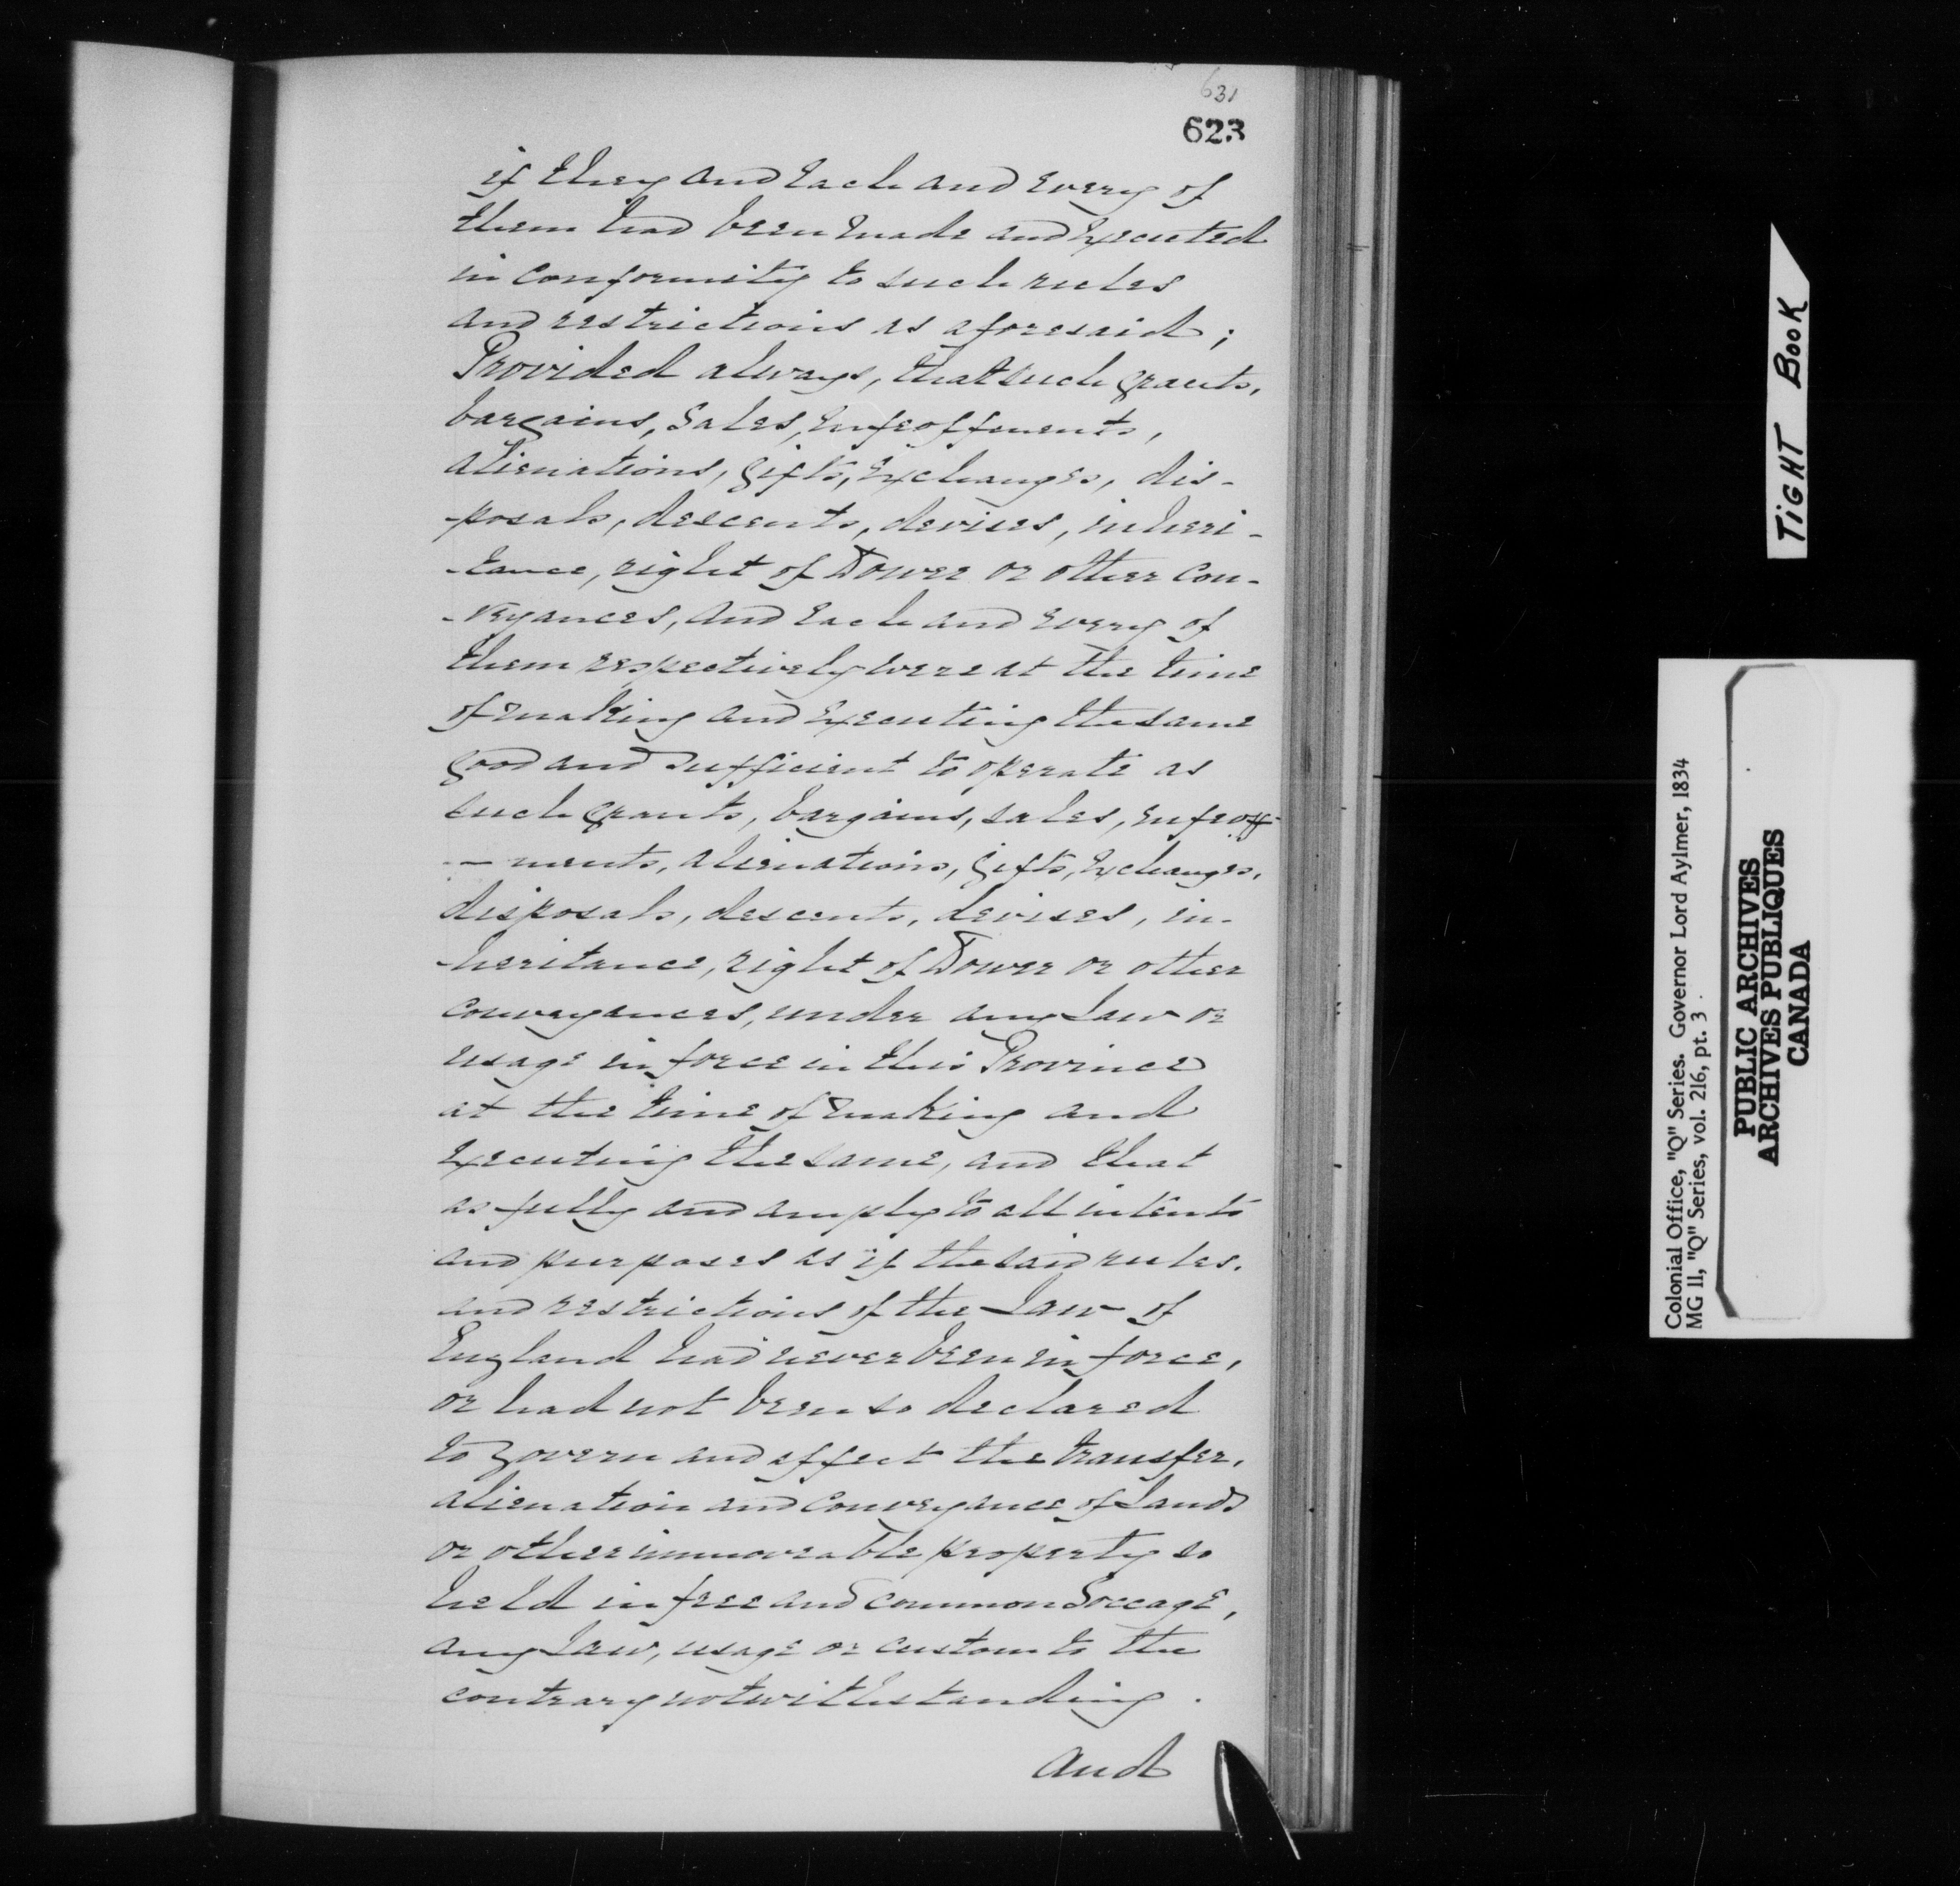 631
623
if they and each and every of
them had been made and executed
in conformity to such rules
and restrictions as aforesaid;
Provided always, that such grants,
bargains, sales, enfeoffements,
alienations, gifts, exchanges, dis-
-posals, descents, devises, inheri-
-tance, right of Dower or other con-
-veyances, and each and every of
them respectively were at the time
of making and executing the same
good and sufficient to operate as
such grants, bargains, sales, enfeoff-
-ments, alienations, gifts, exchanges,
disposals, descents, devises, in-
-heritance, right of Dower or other
conveyances, under any Law or
usage in force in this Province
at the time of making and
executing the same, and that
as fully and amply to all intents
and purposes as if the said rules.
and restrictions of the Law of
England had never been in force,
or had not been so declared
to govern and affect the transfer,
alienation and conveyance of Lands
or other immoveable property so
held in free and common Soccage,
any Law, usage or custom to the
contrary notwithstanding.
And
TIGHT BOOK
Colonial Office, "Q" Series. Governor Lord Aylmer, 1834
MG 11, "Q" Series, vol. 216, pt. 3.
PUBLIC ARCHIVES
ARCHIVES PUBLIQUES
CANADA